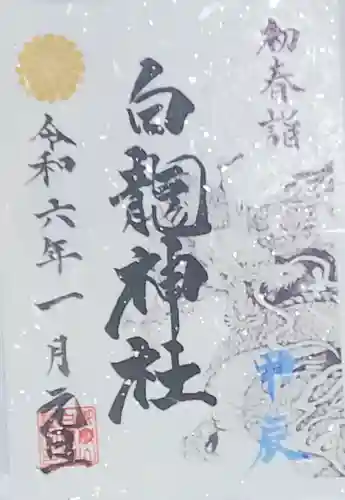 初春詣
白龍神社
令和六年一月元旦
甲辰